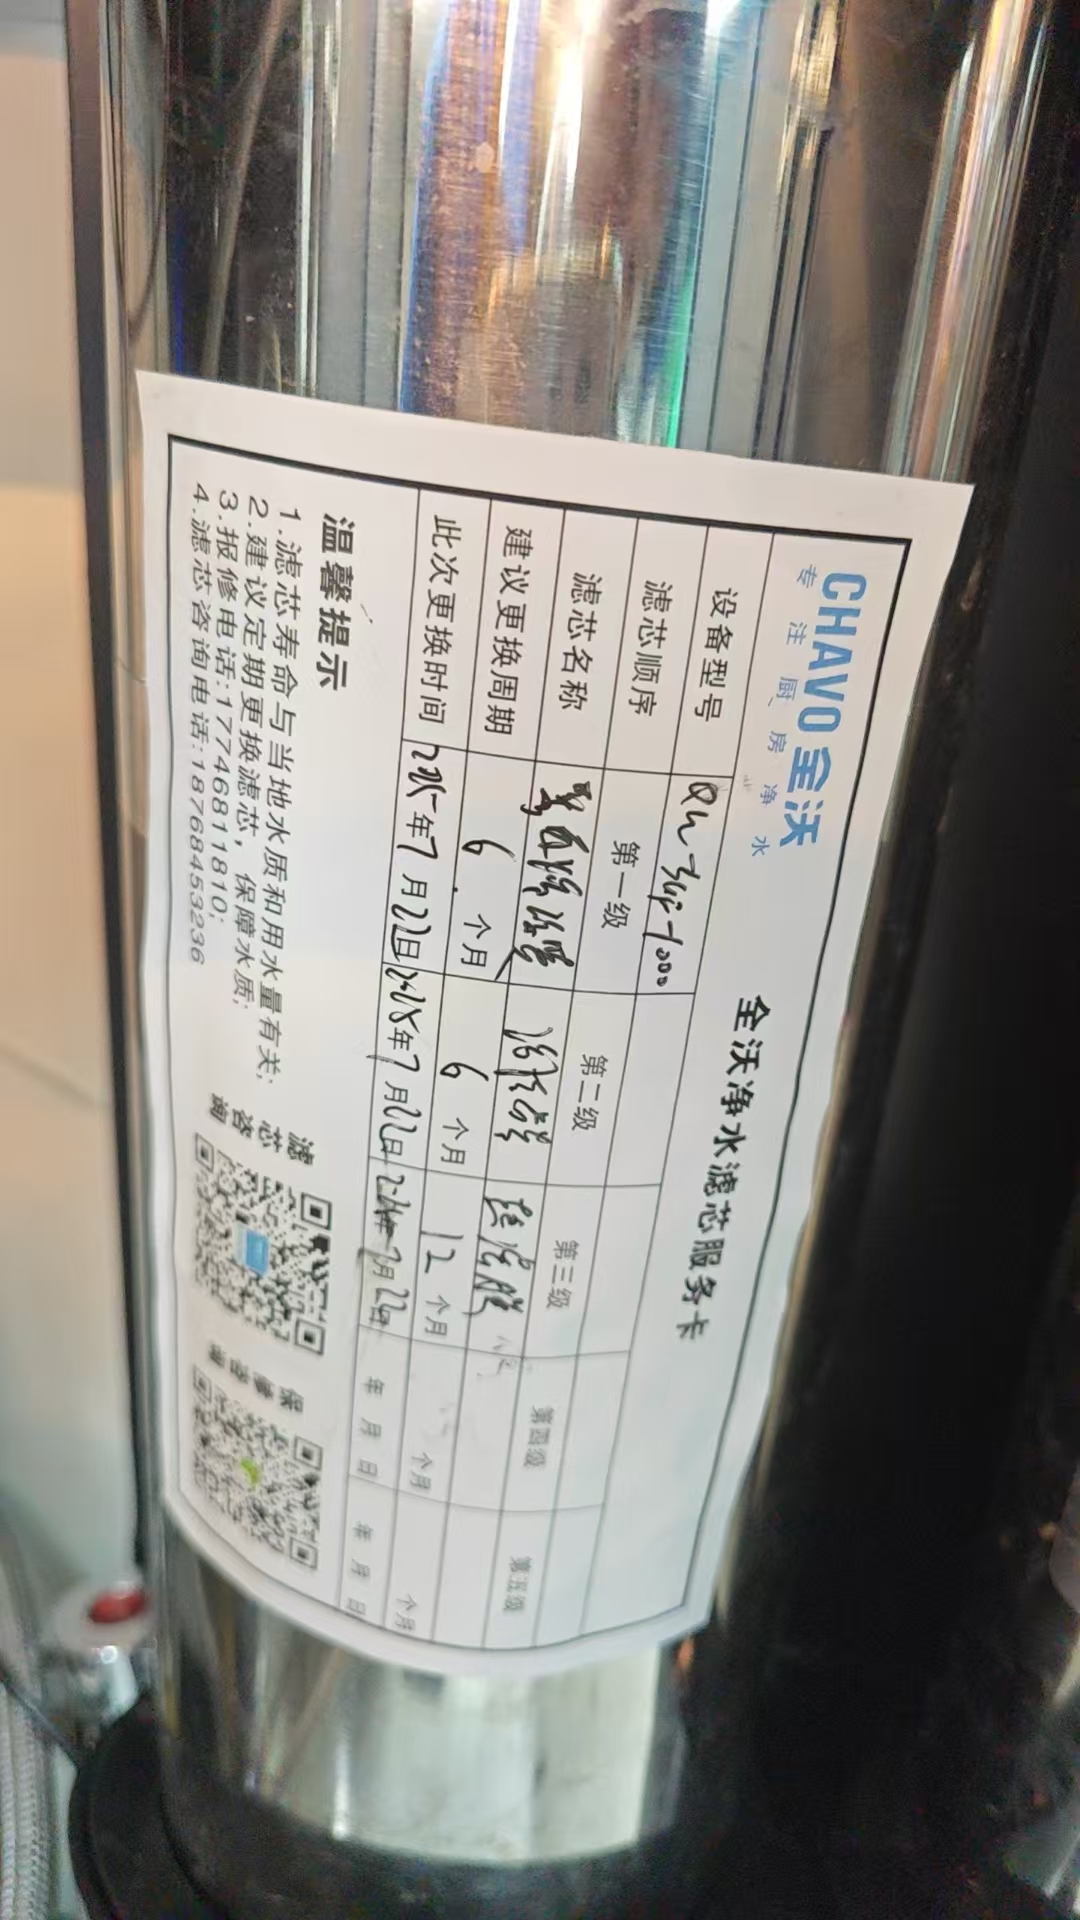 CHAVO 全沃
专注厨房净水
全沃净水滤芯服务卡
设备型号
滤芯顺序 第一级 第二级 第三级 第四级 第五级
滤芯名称
建议更换周期 6 个月 6 个月 12 个月 个月 个月
此次更换时间 年7月22日 年7月22日 年7月22日 年 月 日 年 月 日
温馨提示
1.滤芯寿命与当地水质和用水量有关;
2.建议定期更换滤芯，保障水质;
3.报修电话:17746811810;
4.滤芯咨询电话:18768453236
滤芯咨询